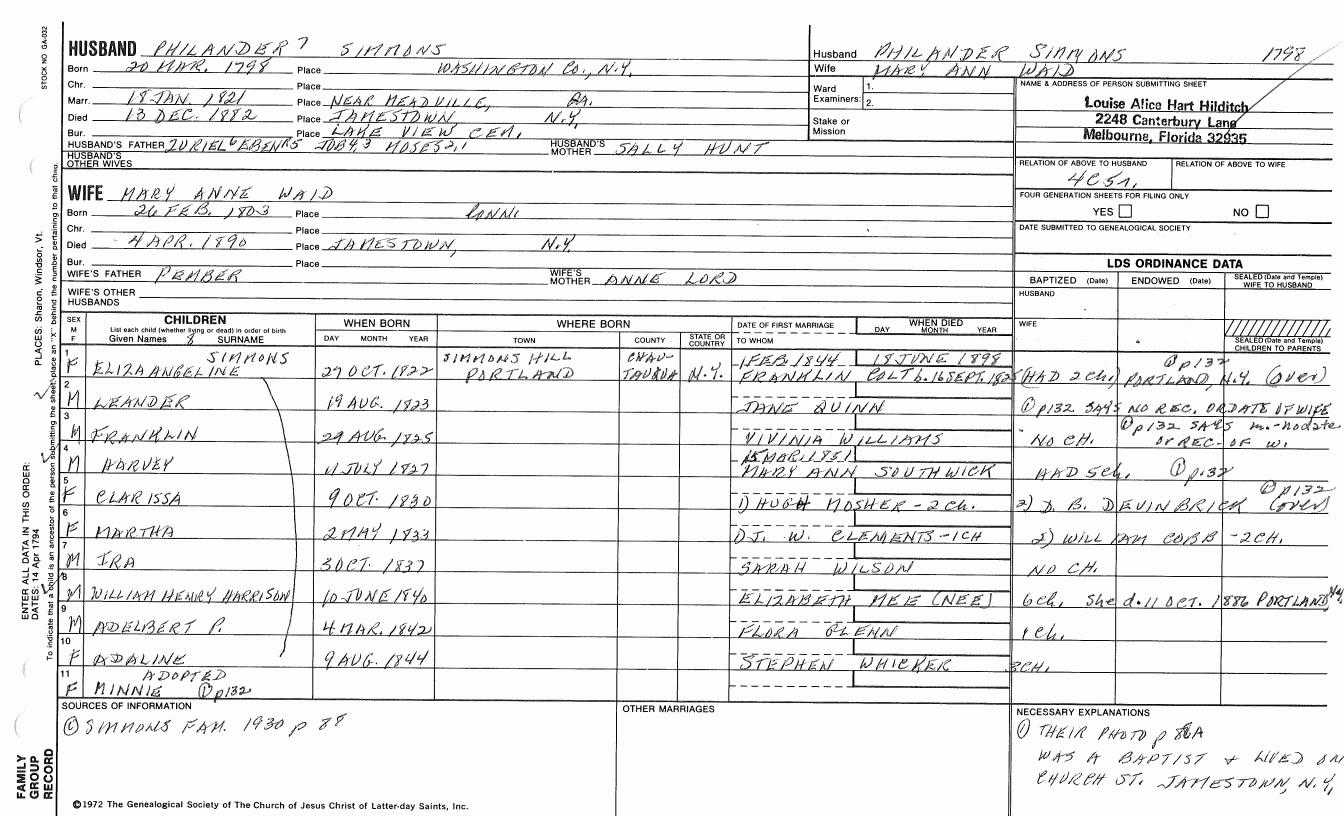 STOCK NO GA-032
HUSBAND PHILANDER 7 SIMMONS
Born 20 MAR. 1798 Place WASHINGTON CO., N.Y.
Chr. Place
Marr. 18 JAN. 1821 Place NEAR MEADVILLE, PA.
Died 13 DEC. 1882 Place JAMESTOWN N.Y.
Bur. Place LAKE VIEW CEM.
HUSBAND'S FATHER ZURIEL 6 EBEN R5 JOB 4,3 MOSES 2,1 HUSBAND'S MOTHER SALLY HUNT
HUSBAND'S OTHER WIVES
WIFE MARY ANNE WAID
Born 26 FEB. 1803 Place CONN.
Chr. Place
Died 4 APR. 1890 Place JAMESTOWN, N.Y.
Bur. Place
WIFE'S FATHER PEMBER WIFE'S MOTHER ANNE LORD
WIFE'S OTHER HUSBANDS
Husband PHILANDER SIMMONS 1798
Wife MARY ANN WAID
Ward Examiners: 1.
2.
Stake or Mission
NAME & ADDRESS OF PERSON SUBMITTING SHEET
Louise Alice Hart Hilditch
2248 Canterbury Lane
Melbourne, Florida 32935
RELATION OF ABOVE TO HUSBAND RELATION OF ABOVE TO WIFE
4C5r.
FOUR GENERATION SHEETS FOR FILING ONLY
YES NO
DATE SUBMITTED TO GENEALOGICAL SOCIETY
LDS ORDINANCE DATA
BAPTIZED (Date) ENDOWED (Date) SEALED (Date and Temple) WIFE TO HUSBAND
HUSBAND
WIFE
SEALED (Date and Temple) CHILDREN TO PARENTS
SEX M F CHILDREN WHEN BORN WHERE BORN DATE OF FIRST MARRIAGE WHEN DIED
List each child (whether living or dead) in order of birth
Given Names 8 SURNAME DAY MONTH YEAR TOWN COUNTY STATE OR COUNTRY TO WHOM DAY MONTH YEAR
1 SIMMONS SIMMONS HILL CHAU- 1 FEB 1844 18 JUNE 1898 ① p132
F ELIZA ANGELINE 27 OCT. 1822 PORTLAND TAUQUA N.Y. FRANKLIN COLT b. 16 SEPT. 1825 (HAD 2 CH.) PORTLAND, N.Y. (over)
2
M LEANDER 19 AUG. 1823 JANE QUINN ① p132 SAYS NO REC. OR DATE OF WIFE
3 ① p132 SAYS m.-no date
M FRANKLIN 29 AUG. 1825 VIVINIA WILLIAMS NO CH. OR REC. OF W.
4 15 MAR. 1851
M HARVEY 11 JULY 1827 MARY ANN SOUTHWICK HAD 5 ch. ① p132
5 ① p132
F CLARISSA 9 OCT. 1830 1) HUGH MOSHER - 2 ch. 2) D. B. DEVINBRICK (over)
6
F MARTHA 2 MAY 1833 1) J. W. CLEMENTS - 1CH 2) WILLIAM COBB - 2CH.
7
M IRA 3 OCT. 1837 SARAH WILSON NO CH.
8
M WILLIAM HENRY HARRISON 10 JUNE 1840 ELIZABETH MEE (NEE) 6 ch. She d. 11 OCT. 1886 PORTLAND, N.Y.
9
M ADELBERT P. 4 MAR. 1842 FLORA GLENN 1 ch.
10
F ADALINE 9 AUG. 1844 STEPHEN WHICKER 3CH.
11 ADOPTED
F MINNIE ① p132
SOURCES OF INFORMATION
© SIMMONS FAM. 1930 p 88
OTHER MARRIAGES
NECESSARY EXPLANATIONS
① THEIR PHOTO p 86A
WAS A BAPTIST & LIVED ON
CHURCH ST. JAMESTOWN, N.Y.
©1972 The Genealogical Society of The Church of Jesus Christ of Latter-day Saints, Inc.
PLACES: Sharon, Windsor, Vt.
ENTER ALL DATA IN THIS ORDER:
DATES: 14 Apr 1794
To indicate that a child is an ancestor of the person submitting the sheet, place an "X" behind the number pertaining to that child.
FAMILY GROUP RECORD